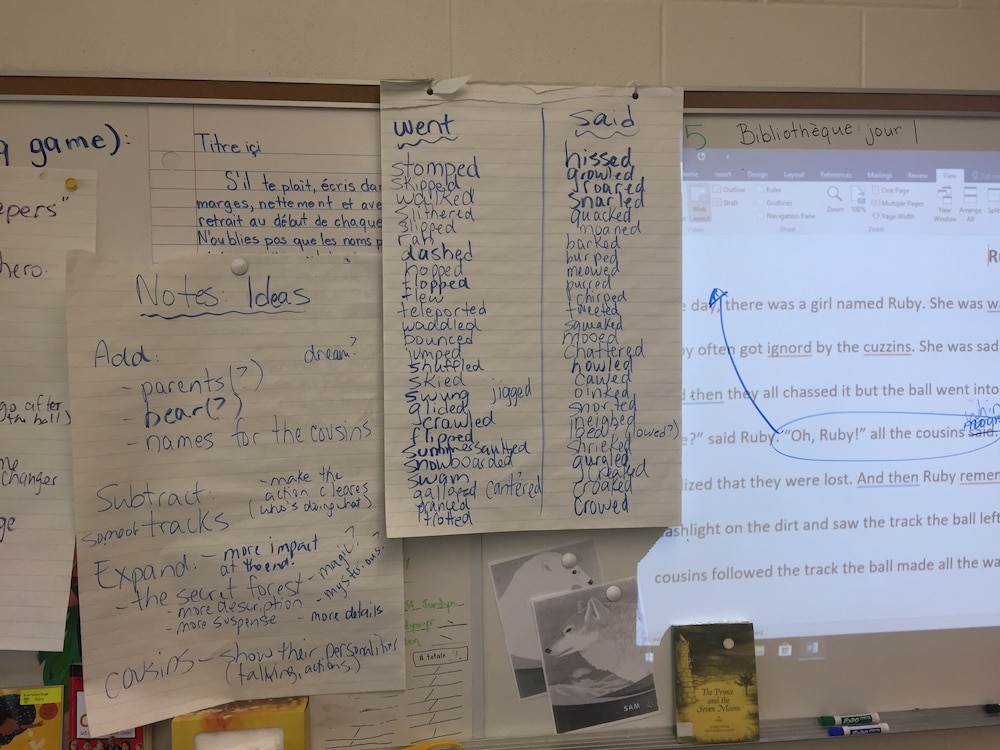 a game):
epers"
hero.
go after
the ball)
me
changer
ge
Titre içi
S'il te plaît, écris da
marges, nettement et ave
retrait au début de chaque
N'oublies pas que les noms p
Notes: Ideas
Add:
dream?
- parents(?)
- bear(?)
- names for the cousins
Subtract:
some of tracks
- make the
action cleares
(who's doing what)
Expand:
- more impact
at the end.
- the secret forest
- magic?
- mysterious?
- more description
- more suspense
- more details
cousins - show their personalities
(talking, actions)
went
stomped
skipped
walked
slithered
slipped
ran
dashed
hopped
flopped
flew
teleported
waddled
bounced
jumped
shuffled
skied
swung
jigged
glided
crawled
flipped
summersaulted
snowboarded
swam
galloped
cantered?
pranced
trotted
said
hissed
growled
roared
snarled
quacked
moaned
barked
burped
meowed
purred
chirped
tweeted
squeaked
mooed
chattered
howled
cawed
oinked
snorted
neighed
shrieked
gurgled
croaked
crowed
# totale
SAM
5 Bibliothèque: jour 1
Home
Insert
Design
Layout
References
Mailings
Review
View
Web
Layout
Outline
Draft
Ruler
Gridlines
Navigation Pane
Show
Zoom
100%
One Page
Multiple Pages
Page Width
Zoom
New
Window
Arrange
All
Split
R
e day, there was a girl named Ruby. She was w
y often got ignord by the cuzzins. She was sad
d then they all chassed it but the ball went into
e?" said Ruby. "Oh, Ruby!" all the cousins said.
lized that they were lost. And then Ruby remem
flashlight on the dirt and saw the track the ball left
cousins followed the track the ball made all the wa
The Prince
and the
Seven Moons
EXPO
EXPO